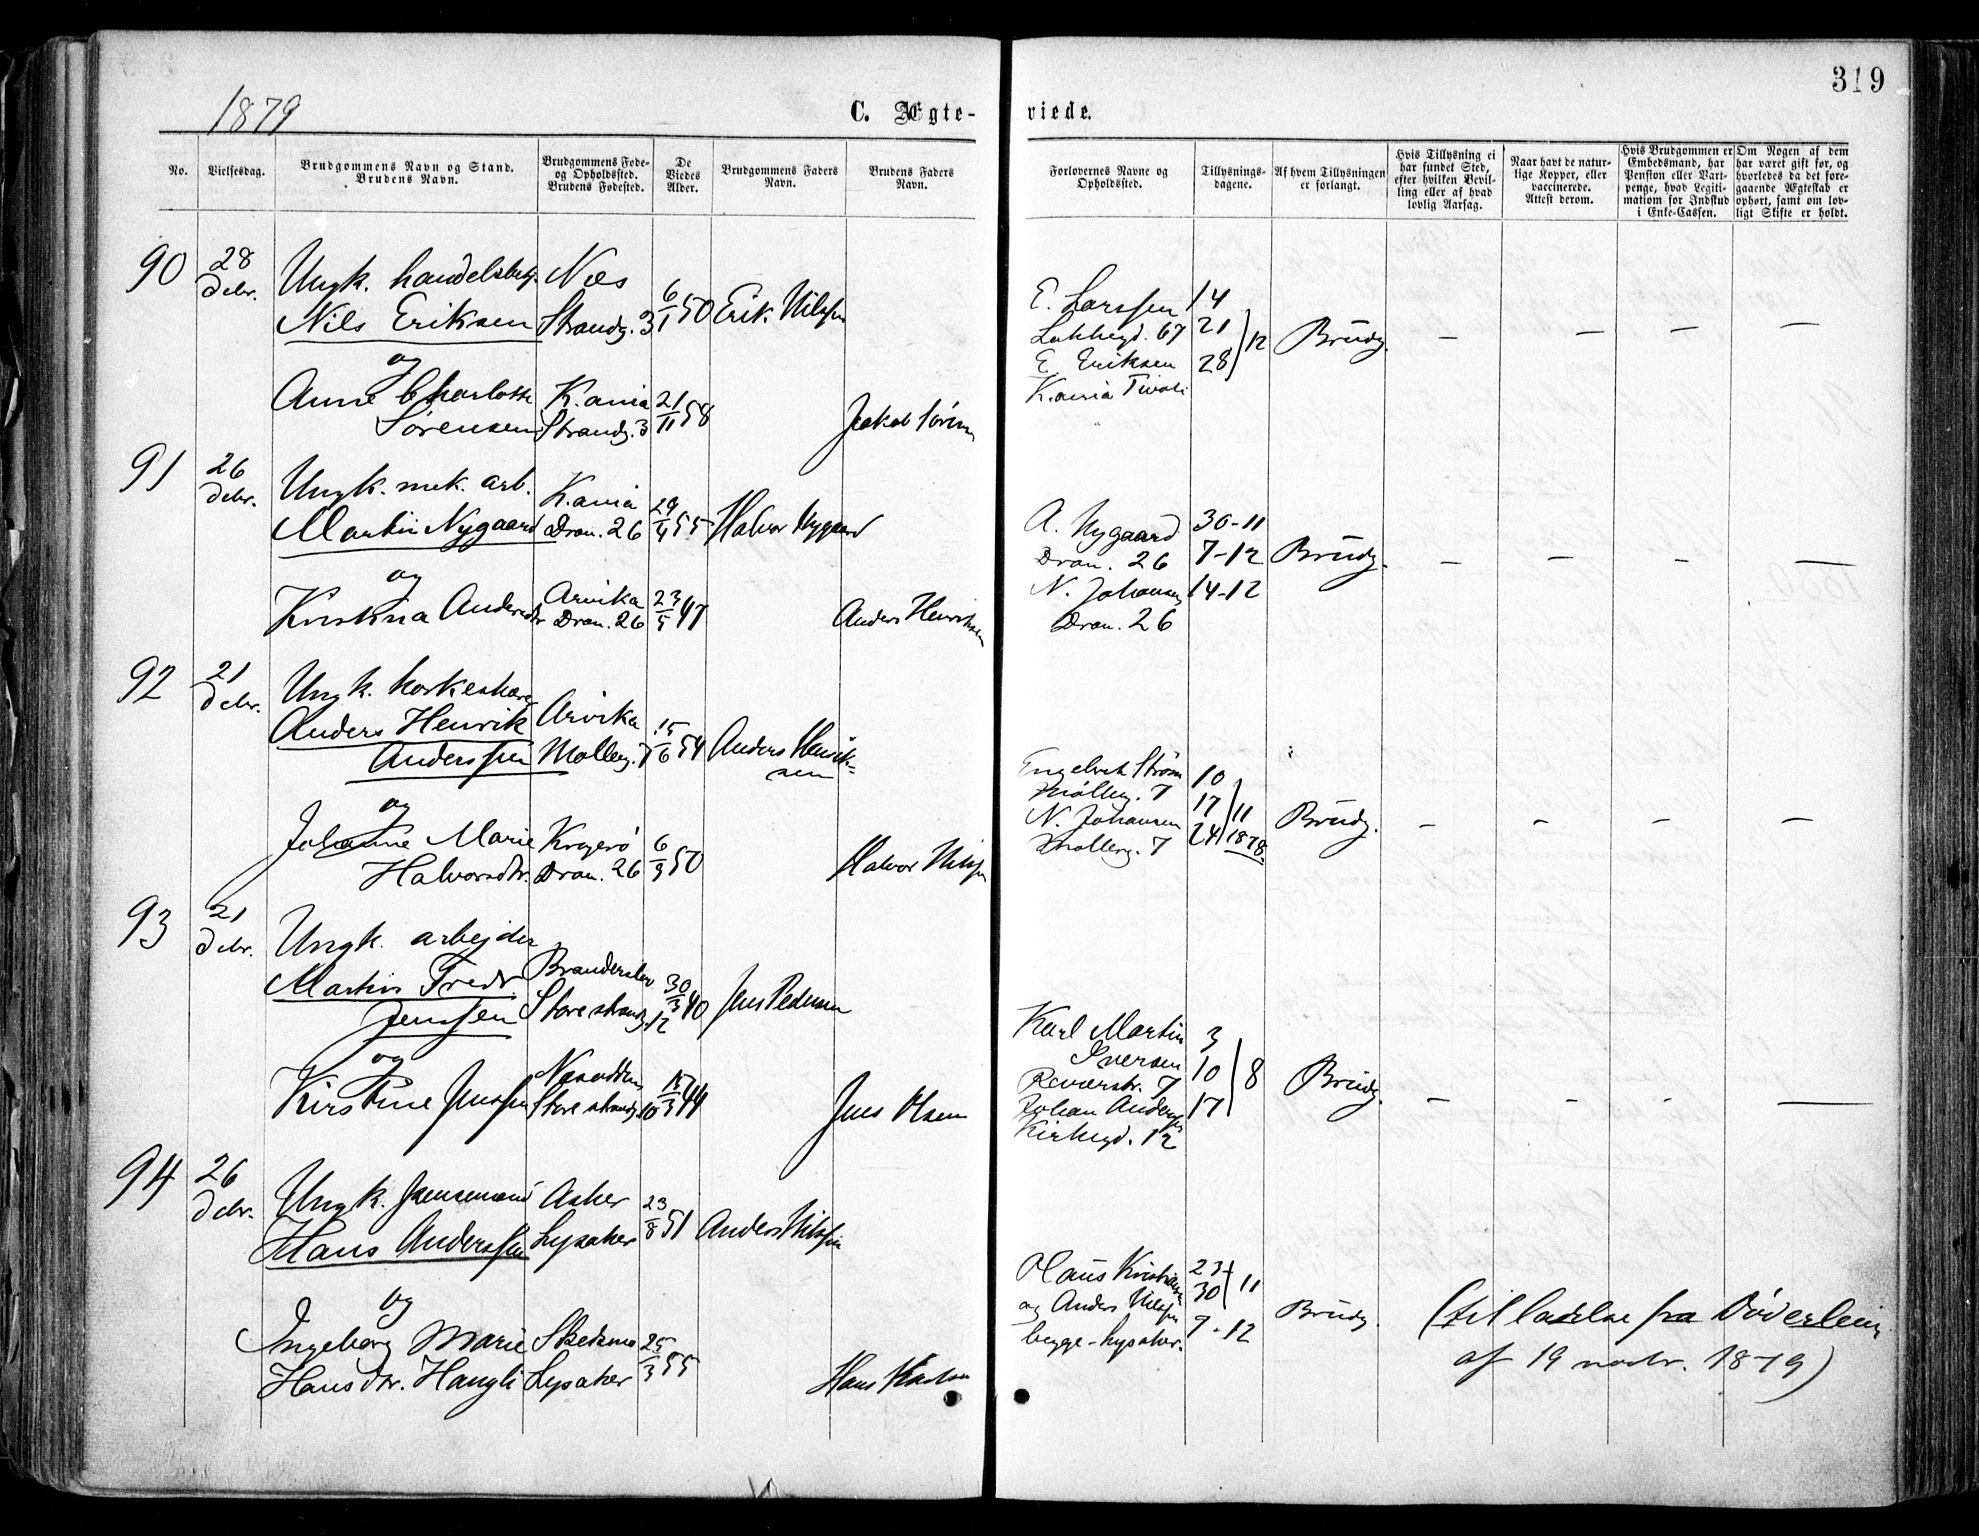 319
1879
C. Ægte-
viede.
No.
Vielsesdag.
Brudgommens Navn og Stand.
Brudens Navn.
Brudgommens Føde-
og Opholdsted.
Brudens Fødested.
De
Viedes
Alder.
Brudgommens Faders
Navn.
Brudens Faders
Navn.
Forlovernes Navne og
Opholdsted.
Tillysnings-
dagene.
Af hvem Tillysningen
er forlangt.
Hvis Tillysning ei
har fundet Sted,
efter hvilken Bevil-
ling eller af hvad
lovlig Aarsag.
Naar havt de natur-
lige Kopper, eller
vaccinerede.
Attest derom.
Hvis Brudgommen er
Embedsmand, har
Pension eller Vart-
penge, hvad Legiti-
mation for Indskud
i Enke-Cassen.
Om Nogen af dem
har været gift før, og
hvorledes da det fore-
gaaende Ægteskab er
ophørt, samt om lov-
ligt Skifte er holdt.
90
28
Debr.
Ungk. handelsbetj.
Nils Eriksen
og
Anne Charlotte
Sørensen
Næs
Strandg. 3
K.ania
Strandg. 3
6/1 50
21/11 58
Erik Nilssen
Jakob Sørensen
E. Larssen
Lakkegd. 67
E. Eriksen
K.ania Tivoli
14
21
28
12
Brudg.
91
26
Debr.
Ungk. mek. arb.
Martin Nygaard
og
Kristina Andersdtr
K.ania
Dron. 26
Arvika
Dron. 26
29/4 55
23/5 47
Halvor Nygaard
Anders Henriksen
A. Nygaard
Dron. 26
N. Johansen
Dron. 26
30-11
7-12
14-12
Brudg.
92
21
Debr.
Ungk. korkeskærer
Anders Henrik
Anderssen
og
Johanne Marie
Halvorsdtr.
Arvika
Mølleg. 7
Kragerø
Dron. 26
15/6 54
6/9 50
Anders Henrik-
sen
Halvor Nilssen
Engelbrek Strøm
Mølleg. 7
N. Johansen
Mølleg. 7
10
17
24
11
1878.
Brudg.
93
21
Debr.
Ungk. arbejder
Martin Fredr.
Jenssen
og
Kirstine Jenssen
Storestrandg. 12
Nesodden
Storestrandg. 10
30/3 40
15/3 44
Jens Pedersen
Jens Olsen
Karl Martin
Iversen
Reverstr. 7
Johan Anderssen
Kirkegd. 12
3
10
17
8
Brudg.
94
26
Debr.
Ungk. jernsmand
Hans Anderssen
og
Ingeborg Marie
Hansdtr. Hangli
Asker
Lysaker
Skedsmo
Lysaker
23/8 51
25/3 55
Anders Nilssen
Hans
Hans Kristiansen
og Anders Nilssen
begge Lysaker.
23
30
11
7-12
Brudg.
(tilladelse fra Døderlein
af 19 novbr. 1879)